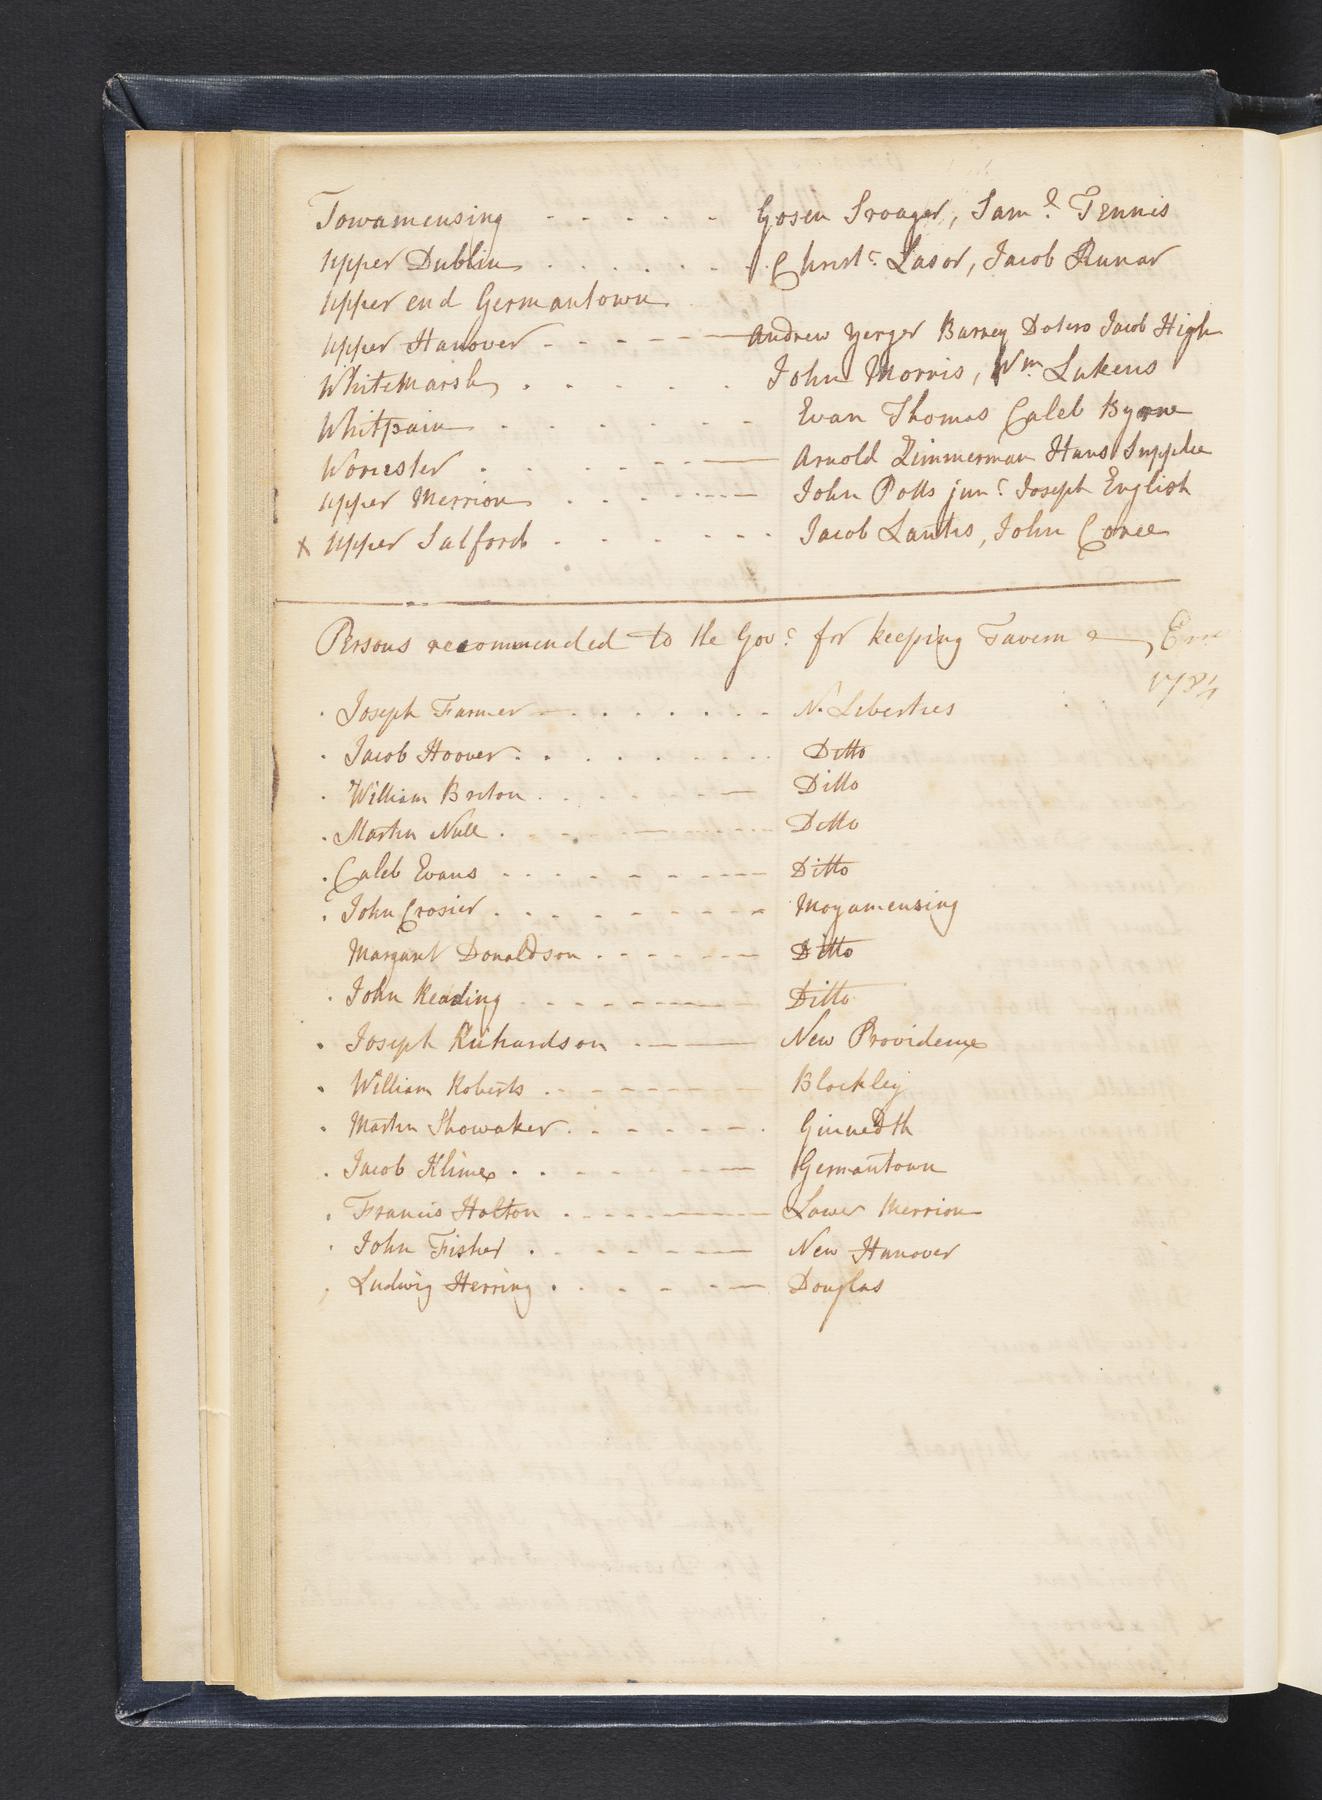 Towamensing - - - - - Gosen Srager, Sam.l Tennis
Upper Dublin . . . . . . Christ.r Lasor, Jacob Runar
Upper end Germantown
Upper Hanover - - - - - Andrew Yerger Barney Dotero Jacob High
WhiteMarsh . . . . . . John Morris, Wm. Lukens
Whitpain . . . . . . Evan Thomas Caleb Byrne
Worcester . . . . . . Arnold Zimmerman Hans Supplee
Upper Merrion . . . . . John Potts jun.r Joseph English
x Upper Salford . . . . . . Jacob Lantis, John Conee
Persons recommended to the Gov.r for keeping Tavern &
1784
Joseph Farmer . . . . . . N. Liberties
Jacob Hoover . . . . . . Ditto
William Briton . . . . . . Ditto
Martin Null . . . . . . Ditto
Caleb Evans . . . . . . Ditto
John Crosier . . . . . . Moyamensing
Margaret Donaldson . . . . . . Ditto
John Reading . . . . . . Ditto
Joseph Richardson . - - - New Providence
William Roberts . . . . . . Blockley
Martin Showaker . . . . . . Guinedth
Jacob Klines . . . . . . Germantown
Francis Holton . . . . . . Lower Merrion
John Fisher . . . . . . New Hanover
Ludwig Herring . . . . . . Douglas